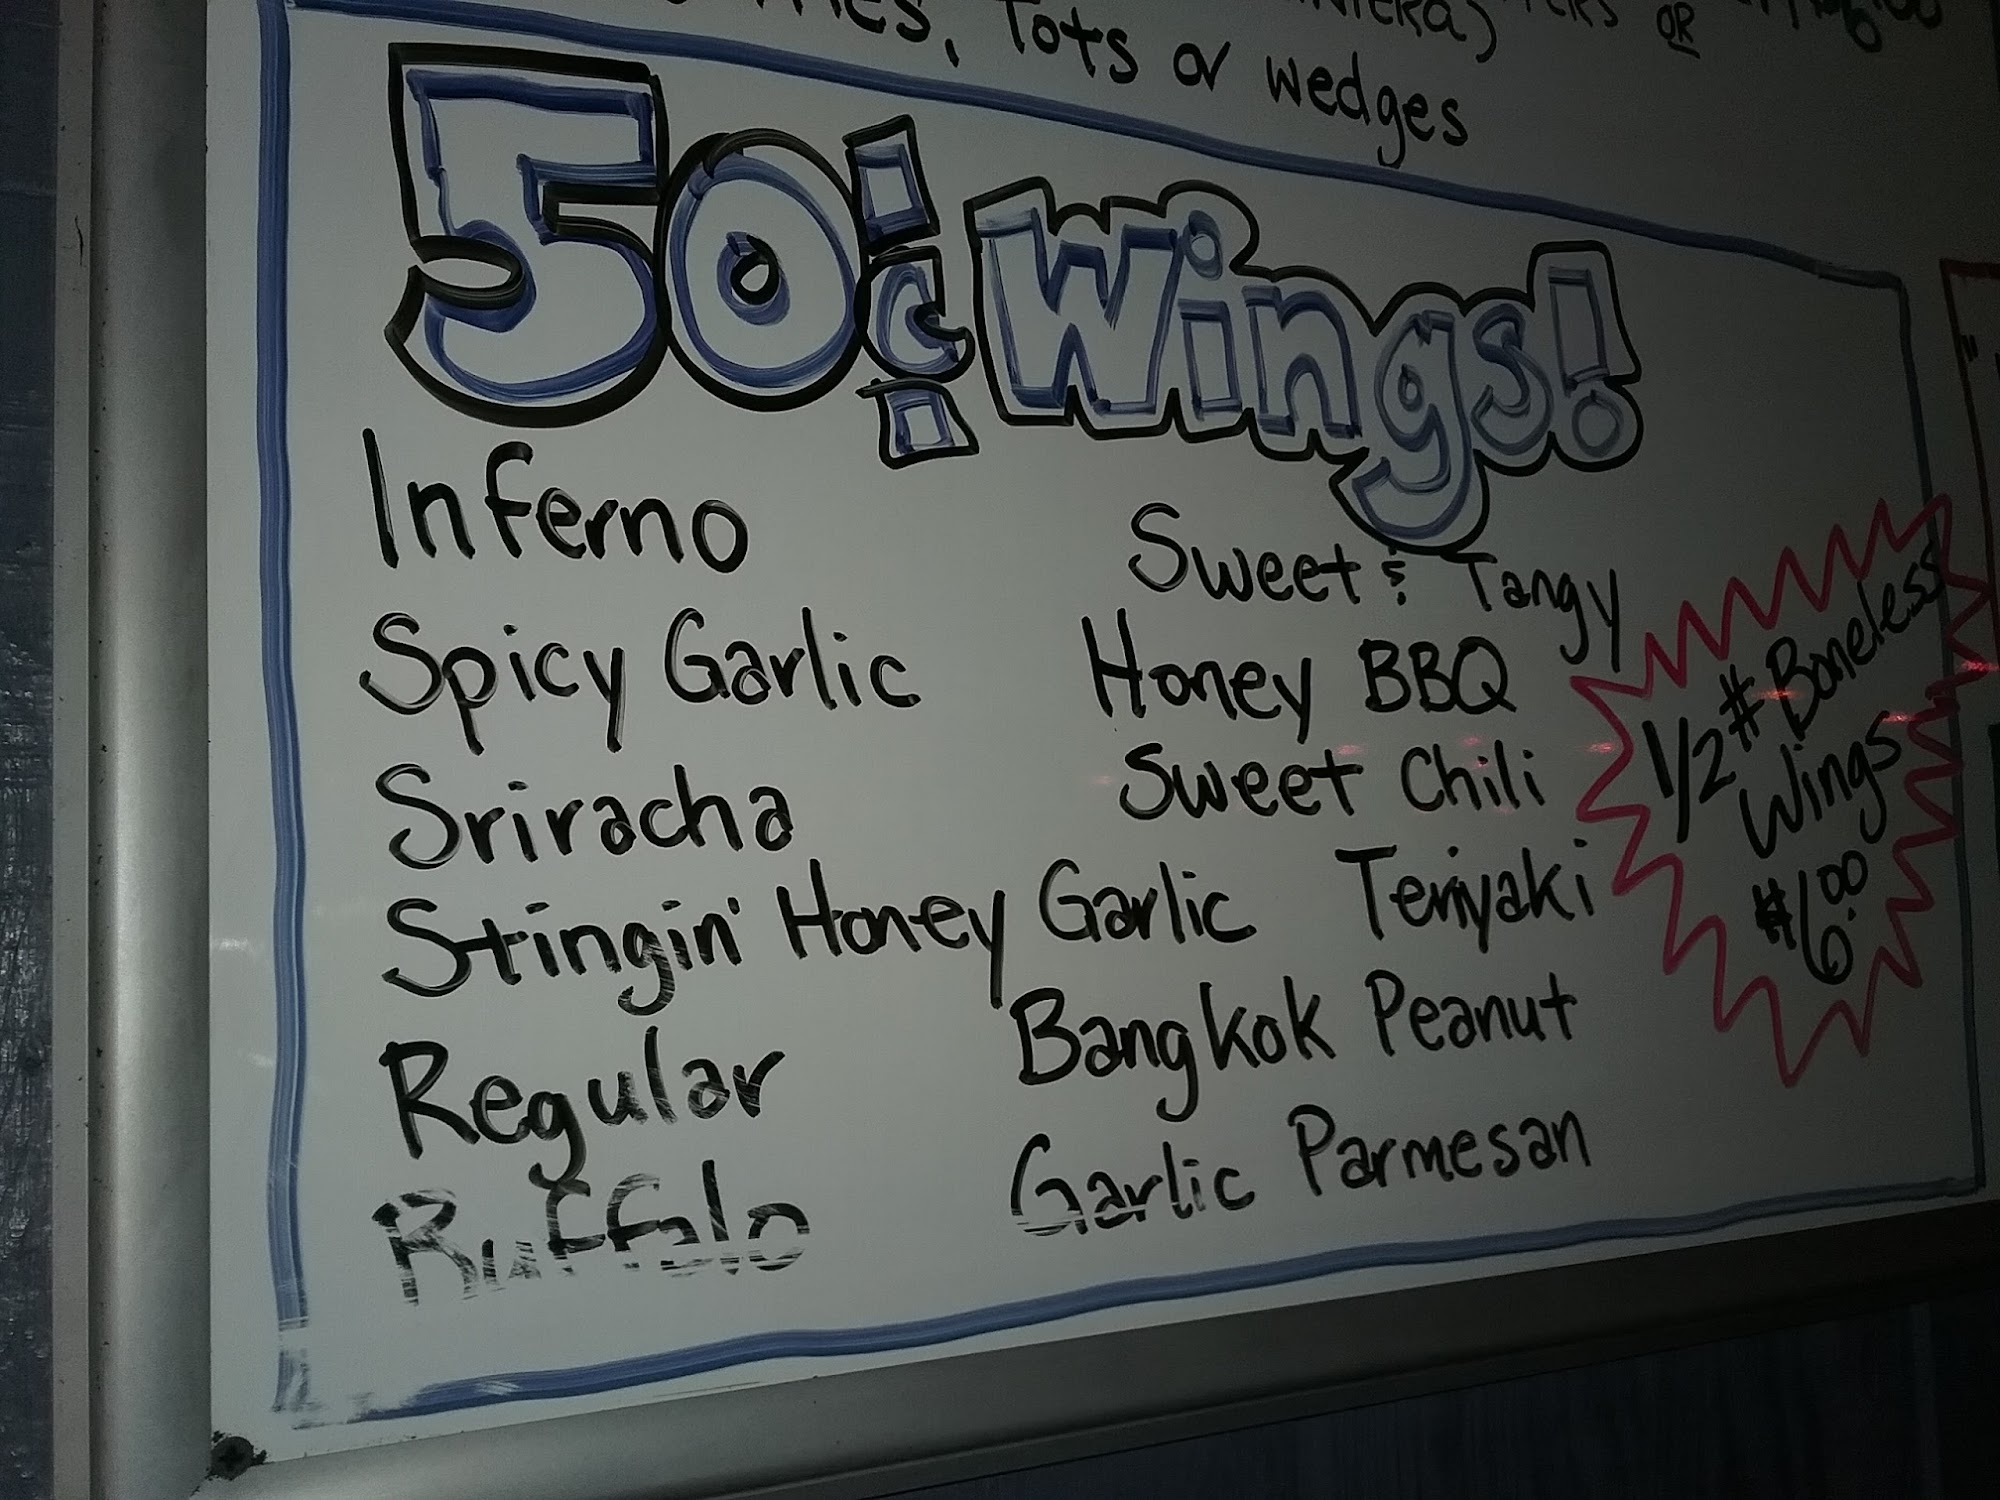 Tots or wedges
OR
50¢ Wings!
Inferno
Spicy Garlic
Sriracha
Stingin' Honey Garlic
Regular
Buffalo
Sweet & Tangy
Honey BBQ
Sweet Chili
Teriyaki
Bangkok Peanut
Garlic Parmesan
1/2 # Boneless
Wings
$6.00